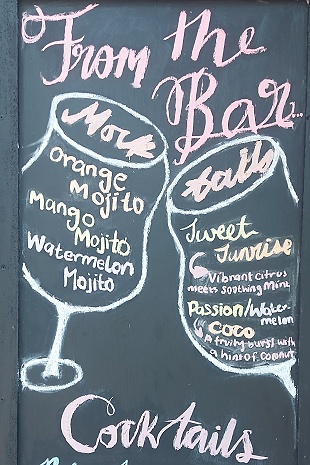 From the
Bar...
Mock
tails
Orange
Mojito
Mango
Mojito
Watermelon
Mojito
Sweet
Sunrise
Vibrant citrus
meets soothing mint
Passion/Water-
melon
Coco
A fruity burst with
a hint of coconut
Cocktails